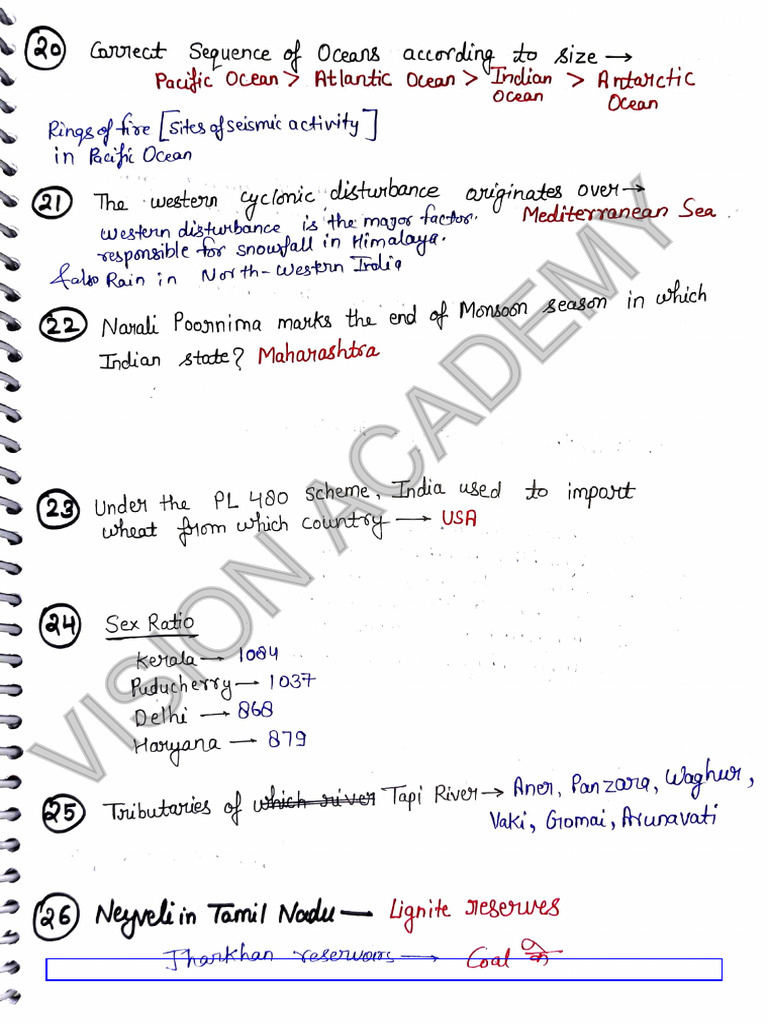 20 Correct Sequence of Oceans according to size →
Pacific Ocean > Atlantic Ocean > Indian Ocean > Antarctic Ocean
Rings of fire [Sites of seismic activity]
in Pacific Ocean
21 The western cyclonic disturbance originates over →
Mediterranean Sea.
Western disturbance is the major factor.
responsible for snowfall in Himalaya.
& also Rain in North-Western India
22 Narali Poornima marks the end of Monsoon season in which
Indian state? Maharashtra
23 Under the PL 480 scheme, India used to import
wheat from which country → USA
24 Sex Ratio
Kerala → 1084
Puducherry → 1037
Delhi → 868
Haryana → 879
25 Tributaries of which river Tapi River → Aner, Panzara, Waghur,
Vaki, Gomai, Arunavati
26 Neyveli in Tamil Nadu — Lignite reserves
Jharkhan reservoirs → Coal के
VISION ACADEMY